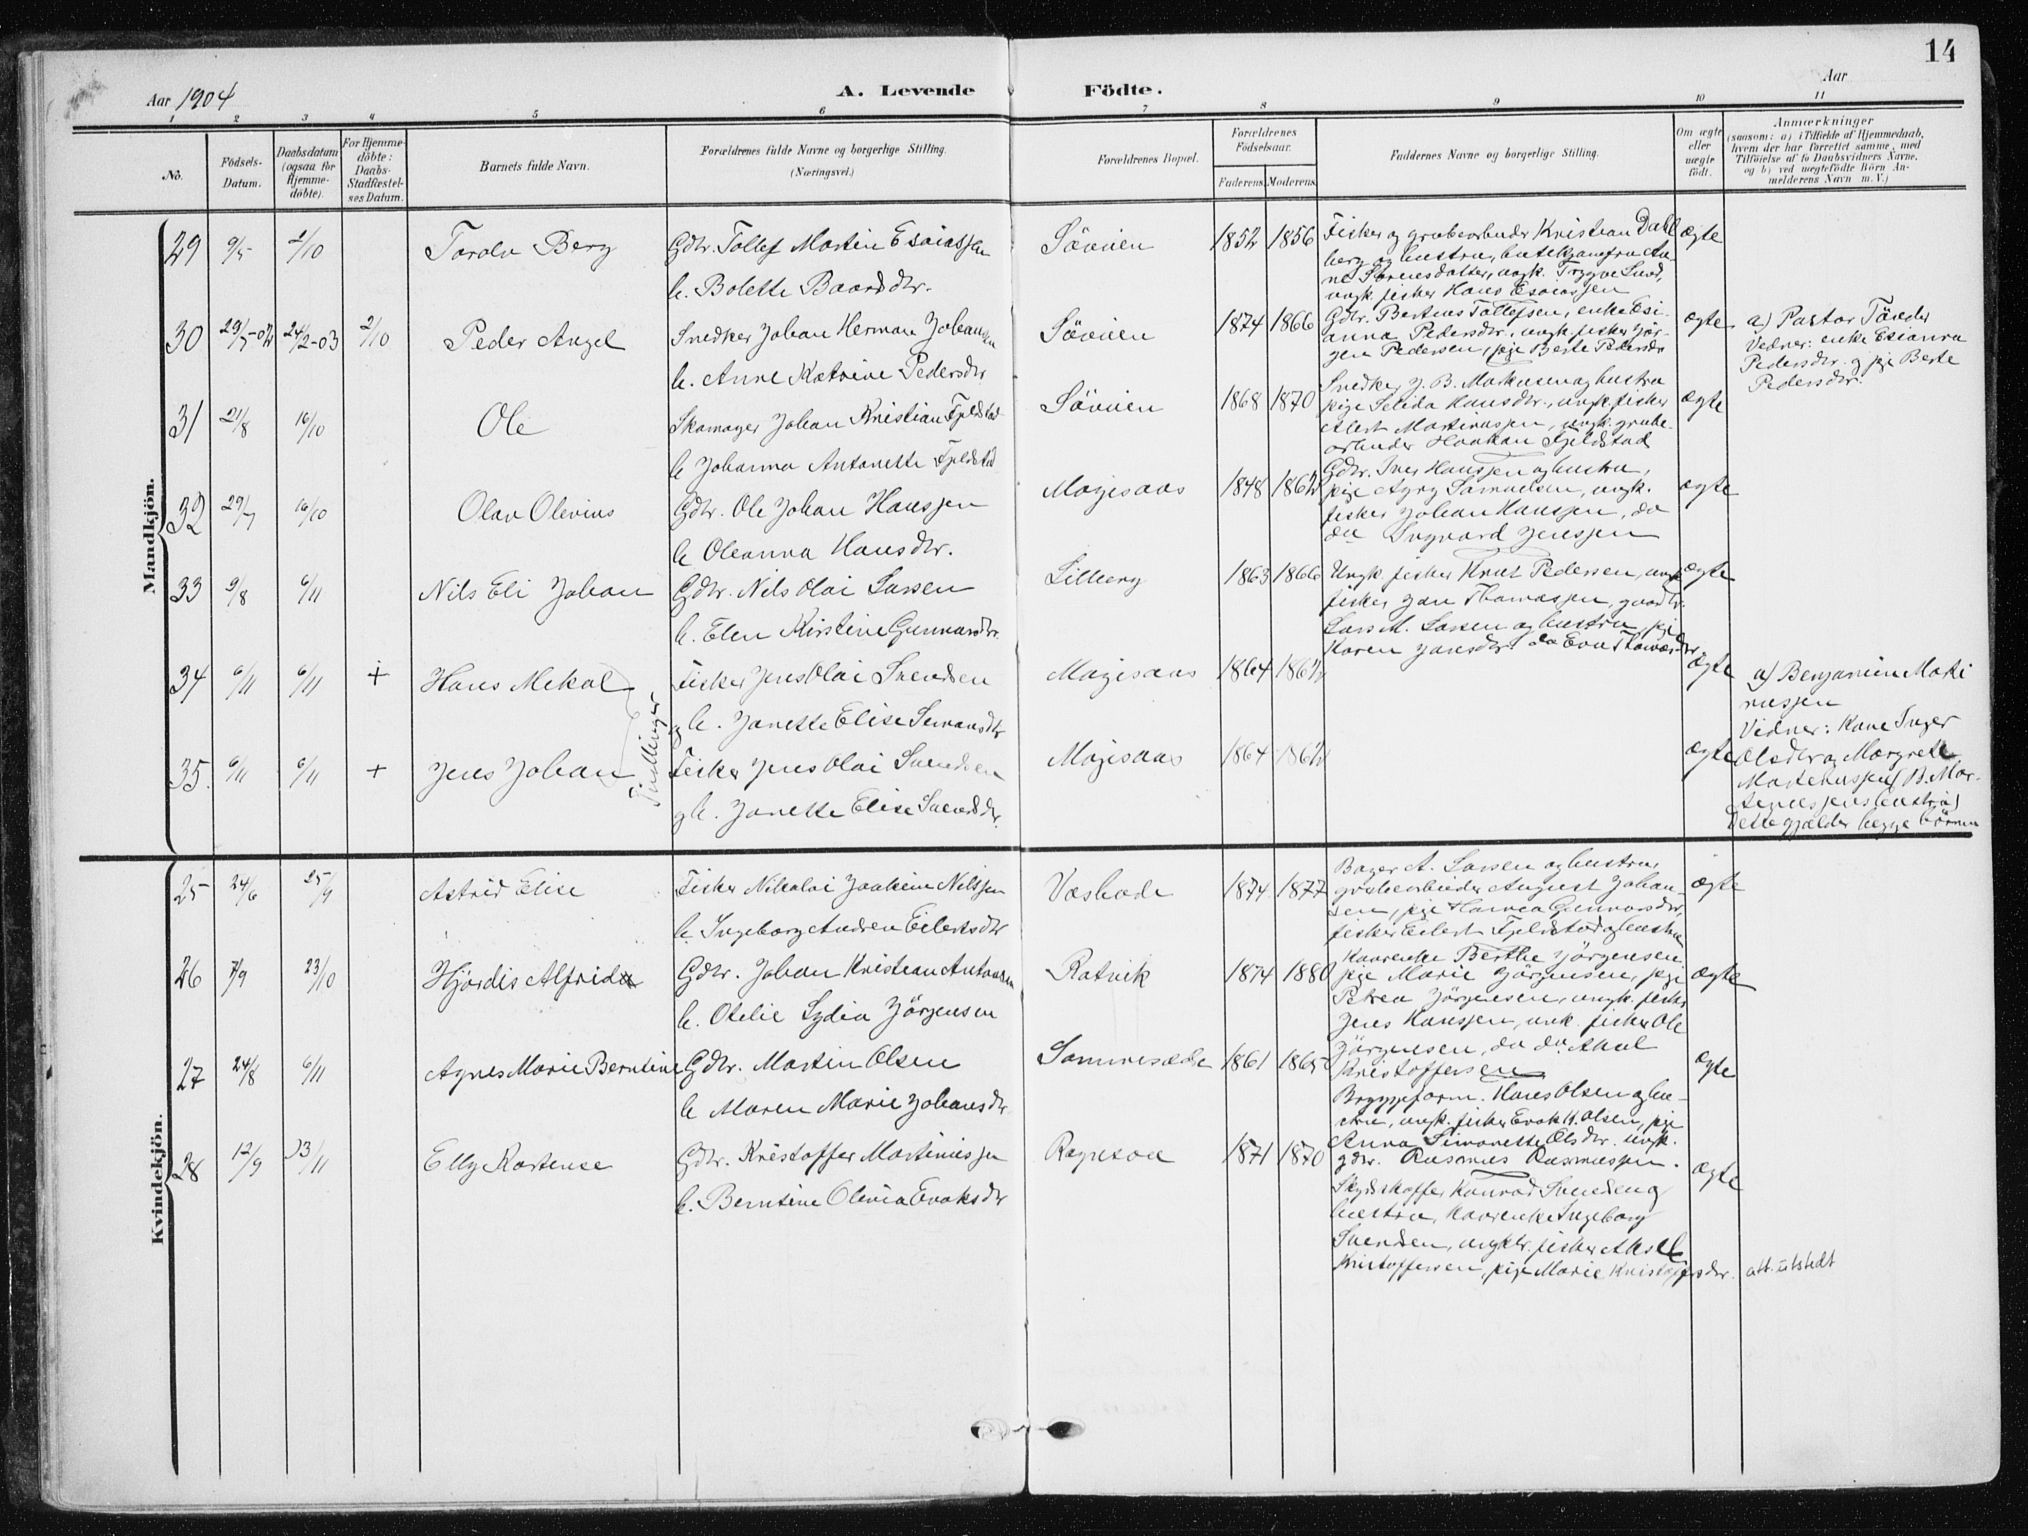 14
Aar 1904
A. Levende Födte.
Aar
1 2 3 4 5 6 7 8 9 10 11
No.
Födsels-Datum.
Daabsdatum (ogsaa for Hjemme-döbte).
For Hjemme-döbte: Daabs-Stadfæstel-ses Datum.
Barnets fulde Navn.
Forældrenes fulde Navne og borgerlige Stilling.
(Næringsvei.)
Forældrenes Bopæl.
Forældrenes Födselsaar.
Faderens. Moderens.
Faddernes Navne og borgerlige Stilling.
Om ægte eller uægte födt.
Anmærkninger
(saasom: a) i Tilfælde af Hjemmedaab, hvem der har forrettet samme, med Tilföielse af to Daabsvidners Navne, og b) ved uægtefödte Börn An-melderens Navn m. V.)
Mandkjön.
29 9/5 2/10 Torolv Berg
Gdbr. Tollef Martin Esaiassen
h. Bolette Baardsdtr.
Sövien 1852 1856
Fisker og grubearbeider Kristian Dahl
berg og hustru,
vngk. Trygve Lund,
ungk. fisker Hans Esaiassen
ægte
30 29/7-02 24/2-03 2/10 Peder Angel
Snedker Johan Herman Johansen
h. Anne Katrine Pedersdtr
Sövien 1874 1866
Gdbr. Berteus Tollefsen, enke Esi-
anna Pedersdtr, ungk. fisker Jör-
gen Pedersen, pige Berte Pedersdtr
ægte
a) Pastor
Vidner: enke Esianna
Pedersdtr. og pige Berte
Pedersdtr.
31 21/8 16/10 Ole
Skomager Johan Kristian Fjeldstad
h Johanna Antonette Fjeldstad
Sövien 1868 1870
Snedker J. B. Markusen og hustru
pige Selida Hansdtr., ungk. fisker
Martinussen, ungk. grube-
arbeider Haakon Fjeldstad
ægte
32 29/7 16/10 Olav Olevius
Gdbr. Ole Johan Hanssen
h Oleanna Hansdtr.
Magisaas 1848 1862
Gdbr. Iver Hanssen og hustru,
pige Samuelsen, ungk.
fisker Johan Hanssen, do
do Ingvard Jenssen
ægte
33 9/8 6/11 Nils Eli Johan
Gdbr. Nils Olai Larsen
h. Elen Kirstine Gunnarsdtr.
Lilleberg 1863 1866
Ungk. fisker Knut Pedersen, ungk
fisker Jan Thomassen, gaardbr.
Lars M. Larsen og hustru, pige
Karen Jansdtr. do Eva Thomasdtr
ægte
34 6/11 6/11 + Hans Mekal
Fisker Jens Olai Svendsen
og h. Janette Elise Simonsdtr
Magisaas 1864 1862
ægte
a) Benjamin Marti
nussen
Vidner: Kone Inger
Olsdtr og Margrete
Martinussen (B. Mar-
tinussens hustru)
Dette gjælder begge börnene
Tvillinger
35. 6/11 6/11 + Jens Johan
Fisker Jens Olai Svendsen
og h. Janette Elise
Magisaas 1864 1862
ægte
Kvindekjön.
25 24/6 25/9 Astrid Elise
Fisker Nikolai Joakim Nilssen
h. Ingeborg Andrea Eilertsdtr
Vasbode 1874 1877
Bager A. Larsen og hustru,
grubearbeider August Johan-
sen, pige Hanna Gunnarsdtr,
fisker Eilert Fjeldstad og hustru
ægte
26 7/9 23/10 Hjördis Alfrida
Gdbr. Johan Kristian Antonsen
h. Otelie Lydia Jörgensen
Ratvik 1874 1880
Kaarenke Berthe Jörgensen
pige Marie Jörgensen, pige
Petrea Jörgensen, ungk. fisker
Jens Hanssen, unk. fisker Ole
Jörgensen, do do Aksel
Kristoffersen
ægte
27 24/8 6/11 Agnes Marie Berntine
Gdbr. Martin Olsen
h Maren Marie Johansdtr
Sommersæde 1861 1865
Bryggeform. Hans Olsen og hu-
stru, ungk. fisker Evak H. Olsen, pige
Anna Simonette Olsdtr. ungk.
gdbr. Rasmus Rasmussen.
ægte
28 12/9 13/11 Elly Kortense
Gdbr. Kristoffer Martinussen
h. Berntine Olevia Evaksdtr
1871 1870
Skydsskaffer Konrad Svendsen og
hustru, Kaarenke Ingeborg
Svendsen, ungkr. fisker Aksel
Kristoffersen, pige Marie Kristoffersdtr.
ægte
att. utstedt